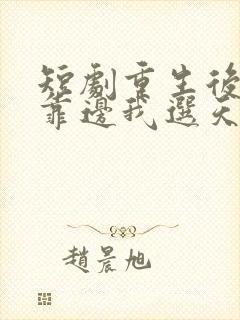 短劇重生後
靠邊我選天
趙晨旭